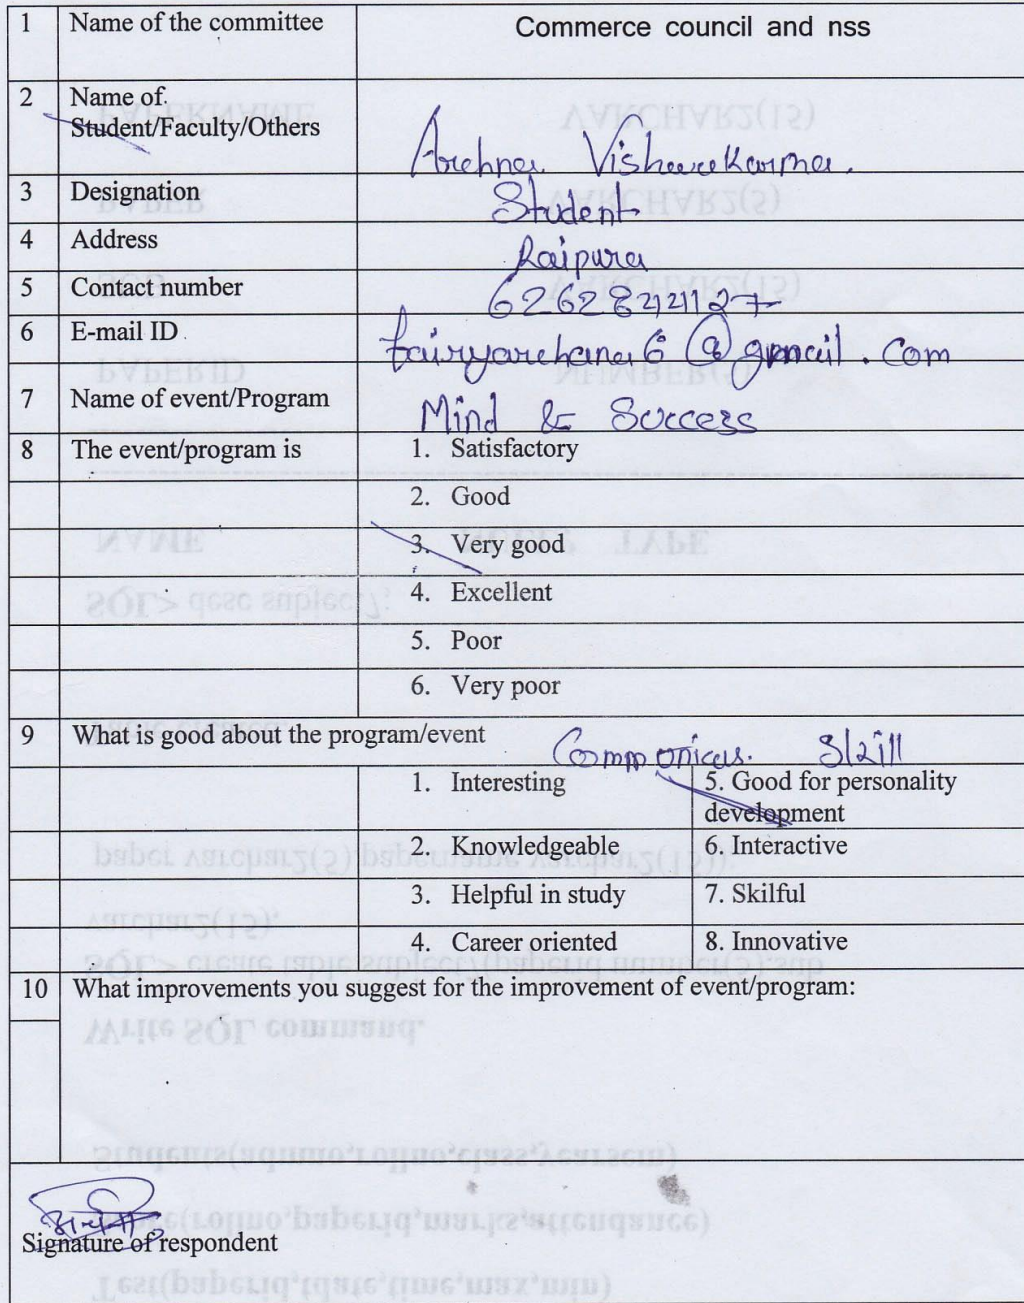 1 Name of the committee Commerce council and nss
2 Name of
Student/Faculty/Others Archna Vishwakarma.
3 Designation Student
4 Address Raipura
5 Contact number
6 E-mail ID fairyarchana6@gmail.com
7 Name of event/Program Mind & Success
8 The event/program is 1. Satisfactory
2. Good
3. Very good
4. Excellent
5. Poor
6. Very poor
9 What is good about the program/event Communicas. Skill
1. Interesting 5. Good for personality
development
2. Knowledgeable 6. Interactive
3. Helpful in study 7. Skilful
4. Career oriented 8. Innovative
10 What improvements you suggest for the improvement of event/program:
Signature of respondent